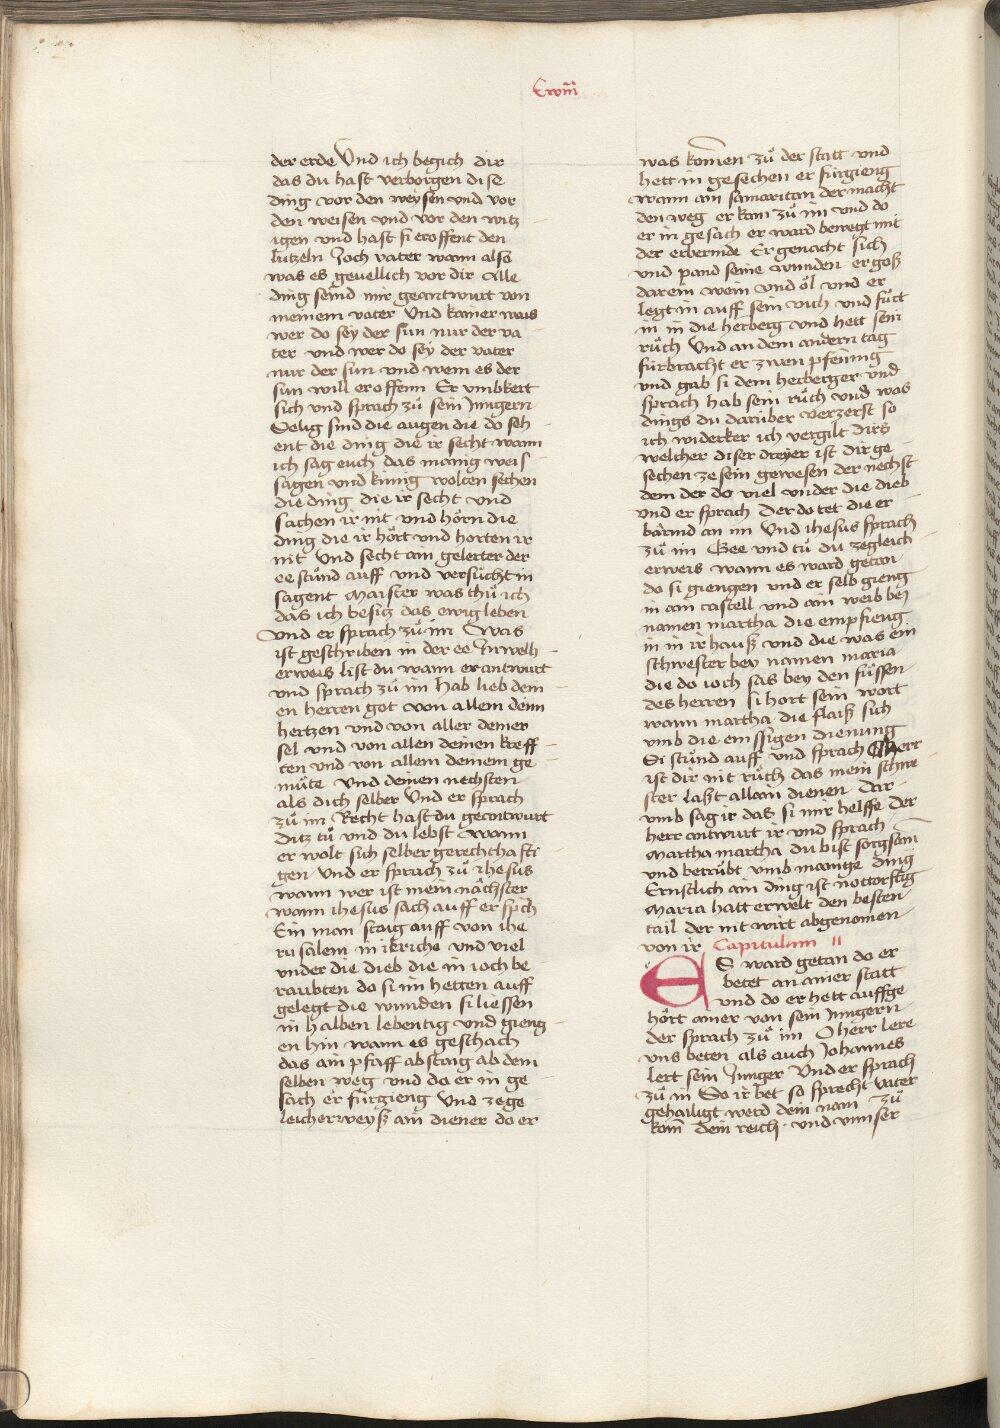 der erde Und ich begich dir
das du hast verborgen dise
ding vor den weysen und vor
den weisen und vor den witz
igen und hast si eroffent den
lutzeln Joch vater wann also
was es gevellich vor dir Alle
ding seind mir geantwurt von
meinem vater Und kainer wais
wer do sey der sun nur der va
ter und wer do sey der vater
nur der sun und wem es der
sun will eroffenn Er umbkert
sich und sprach zů sein Jungern
Selig sind die augen die do seh
ent die ding die ir secht wann
ich sag euch das manig weis
sagen und kunig wolten sechen
die ding die ir secht und
sachen ir nit und hörn die
ding die ir hört und horten ir
nit Und secht ain gelerter der
ee stůnd auff und versůcht in
sagent Maister was thů ich
das ich besitz das ewig leben
Und er sprach zů im Was
ist geschriben in der ee Jn welh
erweis list du wann er antwurt
und sprach zů im hab lieb dein
en herren got von allem deim
hertzen und von aller deiner
sel und von allen deinen kreff
ten und von allem deinem ge
můte und deinen nechsten
als dich selber Und er sprach
zů im Recht hast du geantwurt
ditz tů und du lebst Wann
er wolt sich selber gerechthafti
gen Und er sprach zů ihesus
wann wer ist mein nächster
wann ihesus sach auff er sp̄ch
Ein man staig auff von ihe
rusalem in ikriche und viel
under die dieb die in ioch be
raubten do si im hetten auff
gelegt die wunden si liessen
in halben lebentig und gieng
en hin wann es geschach
das ain pfaff abstaig ab dem
selben weg und do er in ge
sach er fürgieng Und zege
leicherweyß ain diener do er
was kom̄en zů der statt und
hett in gesechen er fürgieng
wann ain samaritan der macht
den weg er kam zů im und do
er in gesach er ward bewegt mit
der erbermde Er genacht sich
und pand seine wunden er goß
darein wein und öl und er
legt in auff sein vich und fůrt
in in die herberg und hett sein
růch Und an dem andern tag
fürbracht er zwen pfening
und gab si dem herberger und
sprach hab sein růch und was
dings du darüber verzerst so
ich widerker ich vergilt dirs
welcher diser dreyer ist dir ge
sechen ze sein gewesen der nechst
dem der do viel under die dieb
und er sprach der do tet die er
bärmd an im Und ihesus sprach
zů im Gee und tů du zegleich
erweis wann es ward getan
do si giengen und er selb gieng
in ain castell und ain weib bey
namen martha die empfieng
in in ir hauß und die was ein
schwester bey namen maria
die do ioch sas bey den füssen
des herren si hort sein wort
wann martha die flaiß sich
umb die emssigen dienung
Si stůnd auff und sprach Herr
ist dir nit růch das mein schwe
ster laßt allain dienen dar
umb sag ir das si mir helffe der
herr antwurt ir und sprach
Martha martha du bist sorgsam
und betrübt umb mänige ding
Ernstlich ain ding ist nottorftig
Maria hatt erwelt den besten
tail der nit wirt abgenomen
von ir Capitulum 11
ES ward getan do er
betet an ainer statt
und do er hett auffge
hört ainer von sein Jungern
der sprach zů im O herr lere
uns beten als auch Johannes
lert sein Junger Und er sprach
zů in So ir bet so sprecht Vater
gehailigt werd dein nam zů
kom̄ dein reich und unnser